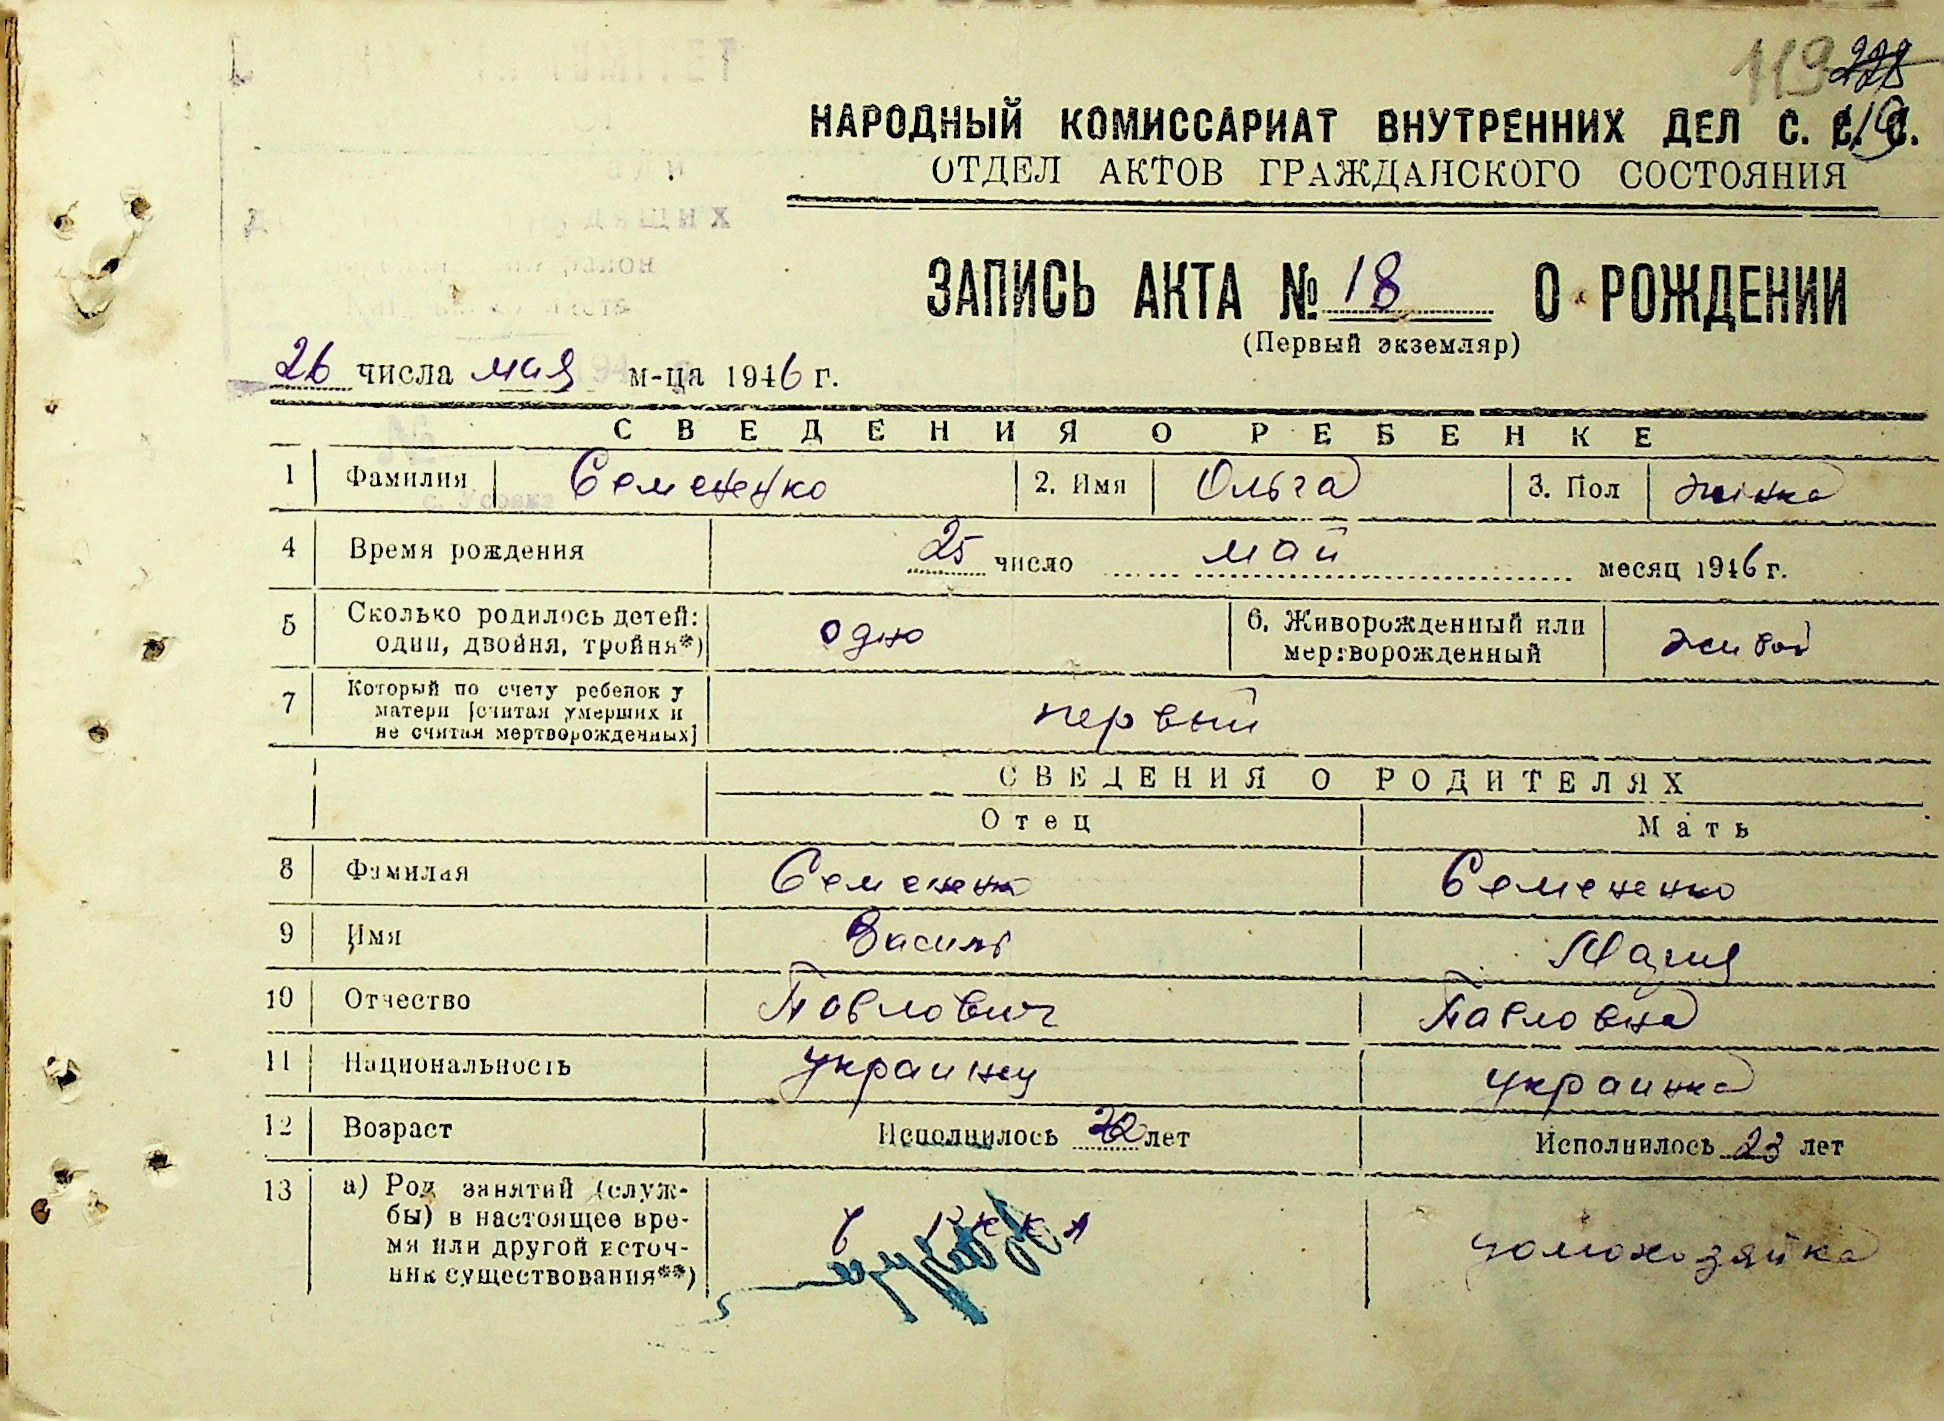 119 228
119
НАРОДНЫЙ КОМИССАРИАТ ВНУТРЕННИХ ДЕЛ С. С. С.
ОТДЕЛ АКТОВ ГРАЖДАНСКОГО СОСТОЯНИЯ
ЗАПИСЬ АКТА № 18 О РОЖДЕНИИ
(Первый экземляр)
26 числа мая м-ца 1946 г.
СВЕДЕНИЯ О РЕБЕНКЕ
1 Фамилия Семененко 2. Имя Ольга 3. Пол жінка
4 Время рождения 25 число май месяц 1946 г.
5 Сколько родилось детей: один, двойня, тройня*) одно 6. Живорожденный или мертворожденный живой
7 Который по счету ребенок у матери [считая умерших и не считая мертворожденных] первый
СВЕДЕНИЯ О РОДИТЕЛЯХ
Отец Мать
8 Фамилая Семененко Семененко
9 Имя Василь Мария
10 Отчество Павлович Павловна
11 Национальность украинец украинка
12 Возраст Исполнилось лет Исполнилось 23 лет
13 а) Род занятий (служ-
бы) в настоящее вре-
мя или другой источ-
ник существования**)
в РККА домохозяйка